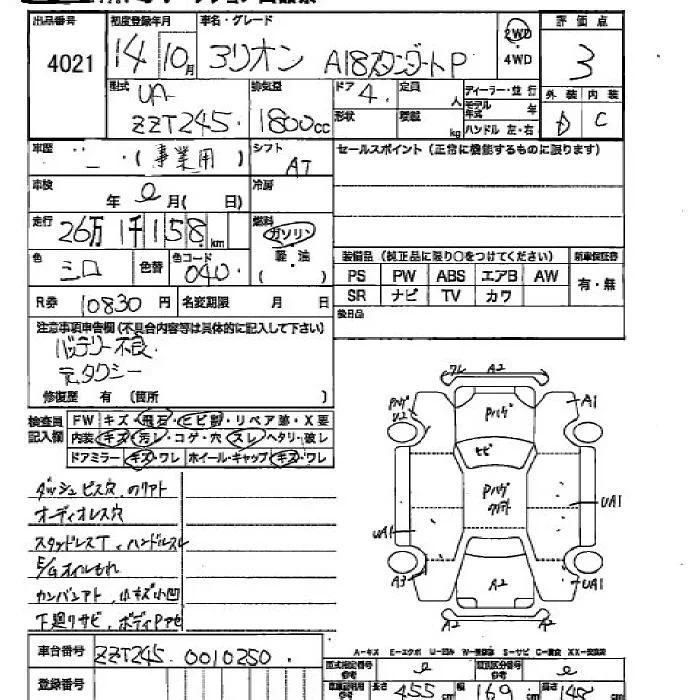 出品番号 初度登録年月 車名・グレード 2WD 評価点
4021 14 10月 アリオン A18スタンダートP ・4WD 3
型式 UA- 排気量 ドア 4. 定員 人 ディーラー・並行 外装 内装
ZZT245. 1800cc 形状 積載 kg モデル年式 年 D C
ハンドル 左・右
車歴 (事業用) シフト AT セールスポイント(正常に機能するものに限ります)
車検 年 0 月( 日) 冷房
走行 26万1千158km 燃料 ガソリン
装備品(純正品に限り○をつけてください) 新車保証書
色 シロ 色替 色コード 040. (軽・油) PS PW ABS エアB AW 有・無
R券 10830円 名変期限 月 日 SR ナビ TV カワ
注意事項申告欄(不具合内容等は具体的に記入して下さい) 後日品
バッテリー不良
元タクシー
修復歴 有 (箇所 )
検査員記入欄 FW キズ・飛石・ヒビ割・リペア跡・X要
内装 キズ・汚レ・コゲ・穴・スレ・ヘタリ・破レ
ドアミラー キズ・ワレ ホイール・キャップ キズ・ワレ
ワレ A2
Pハゲ U2 Pハゲ A1
ヒビ
Pハゲ UA1
UA1
A3 A2 UA1
A2 A2
ダッシュビス穴、のりアト
オーディオレス穴
スタッドレスT、ハンドルスレ
E/Gオイルもれ
カンバンアト、小キズ小凹
下廻りサビ、ボディPアセ
車台番号 ZZT245 . 0010250.
A-キズ E-エクボ U-凹み W-補修跡 S-サビ C-腐食 XX-交換済
型式指定番号 参考 0 類別区分番号 参考 0
登録番号 長さ 455 cm 幅 169 cm 高さ 148 cm